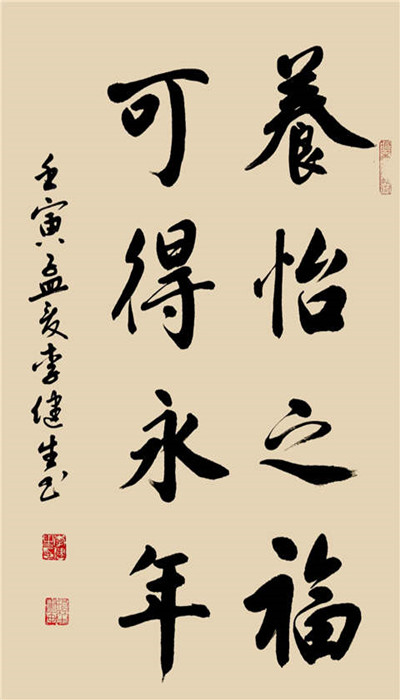 養怡之福
可得永年
壬寅孟夏李健生书